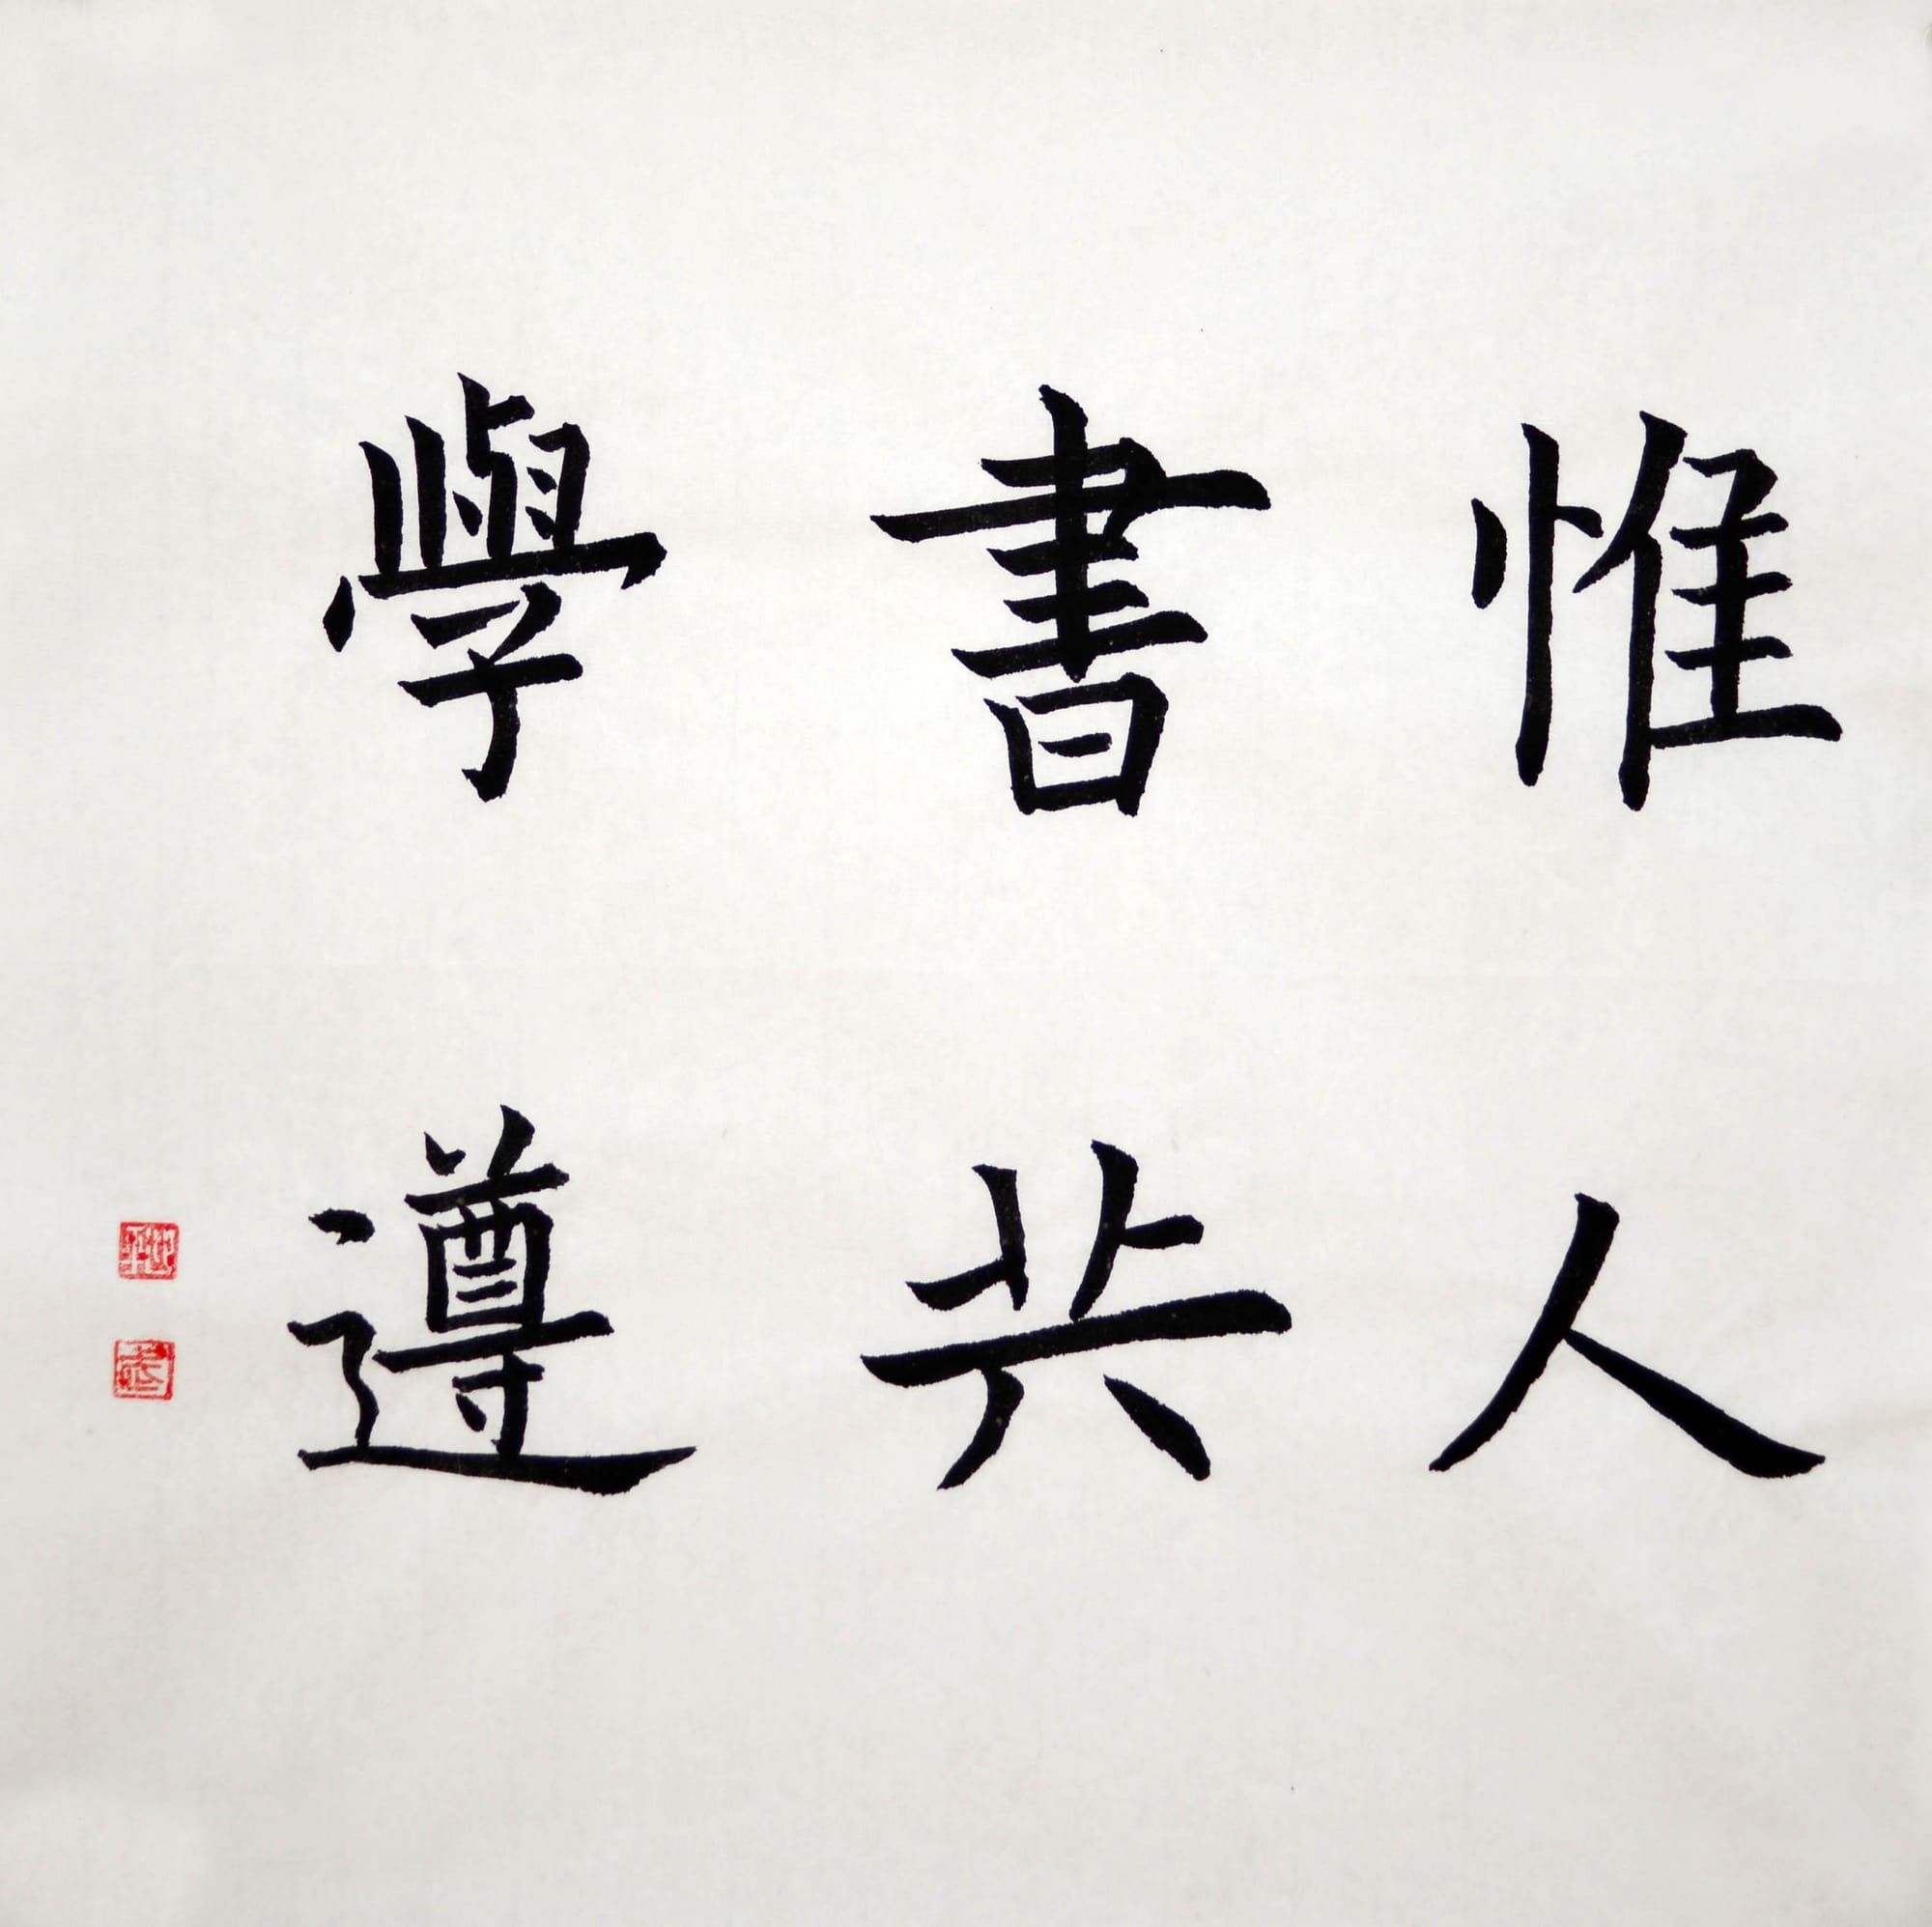 惟書學
人共遵